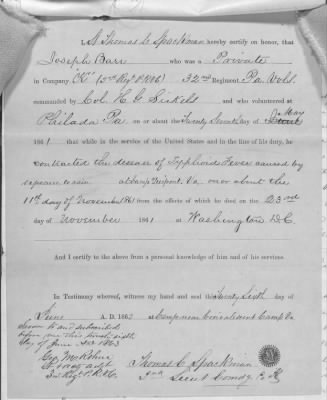 I, Thomas C. Spackman hereby certify on honor, that
Joseph Barr who was a Private
in Company "K" (3rd Regt P.R.V.C) 32nd Regiment Pa Vols.
commanded by Col. H. G. Sickels and who volunteered at
Philada Pa on or about the Twenty Seventh day of May
1861 that while in the service of the United States and in the line of his duty, he
contracted the disease of Typhoid Fever caused by
exposure to rain at Camp Pierpont, Va on or about the
11th day of November 1861 from the effects of which he died on the 23rd
day of November 1861 at Washington D.C.
And I certify to the above from a personal knowledge of him and of his services.
In Testimony whereof, witness my hand and seal this Twenty Sixth day of
June A. D. 1863 at Camp near Va
Sworn to and subscribed
before me this twenty sixth
day of June A.D. 1863
Thomas C. Spackman
2nd Lieut Comdg Co K